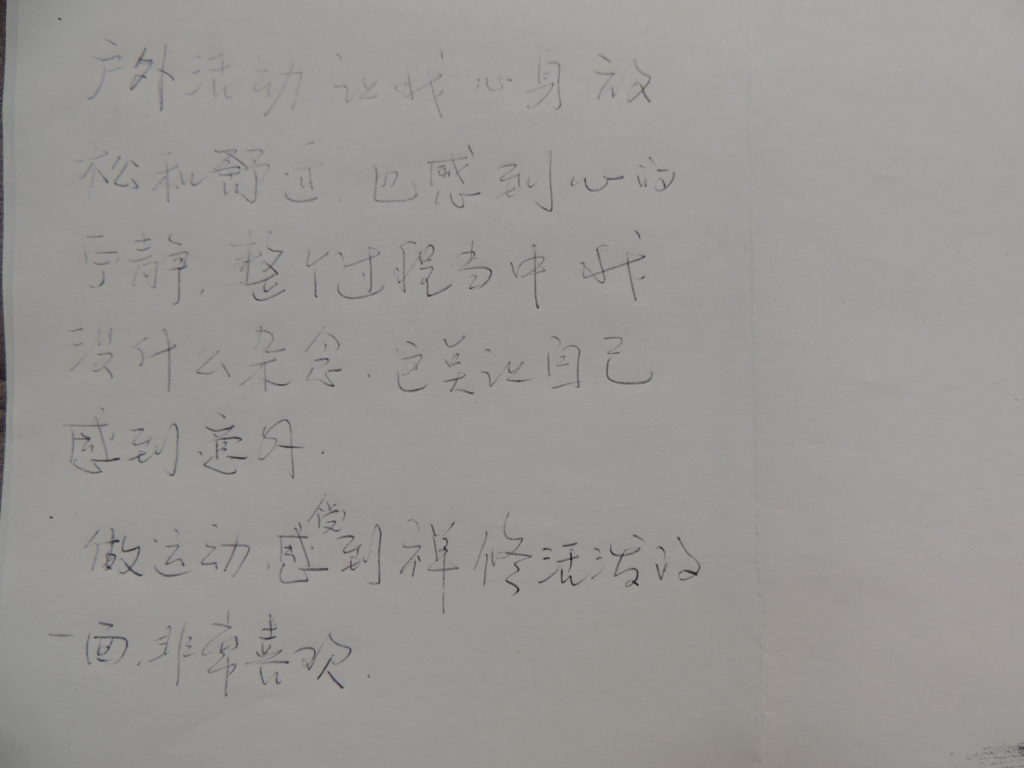 户外活动 让我心身放
松和舒适.也感到心的
宁静.整个过程当中 我
没什么杂念.这莫让自己
感到意外.
做运动.感受到禅修活泼的
一面.非常喜欢.